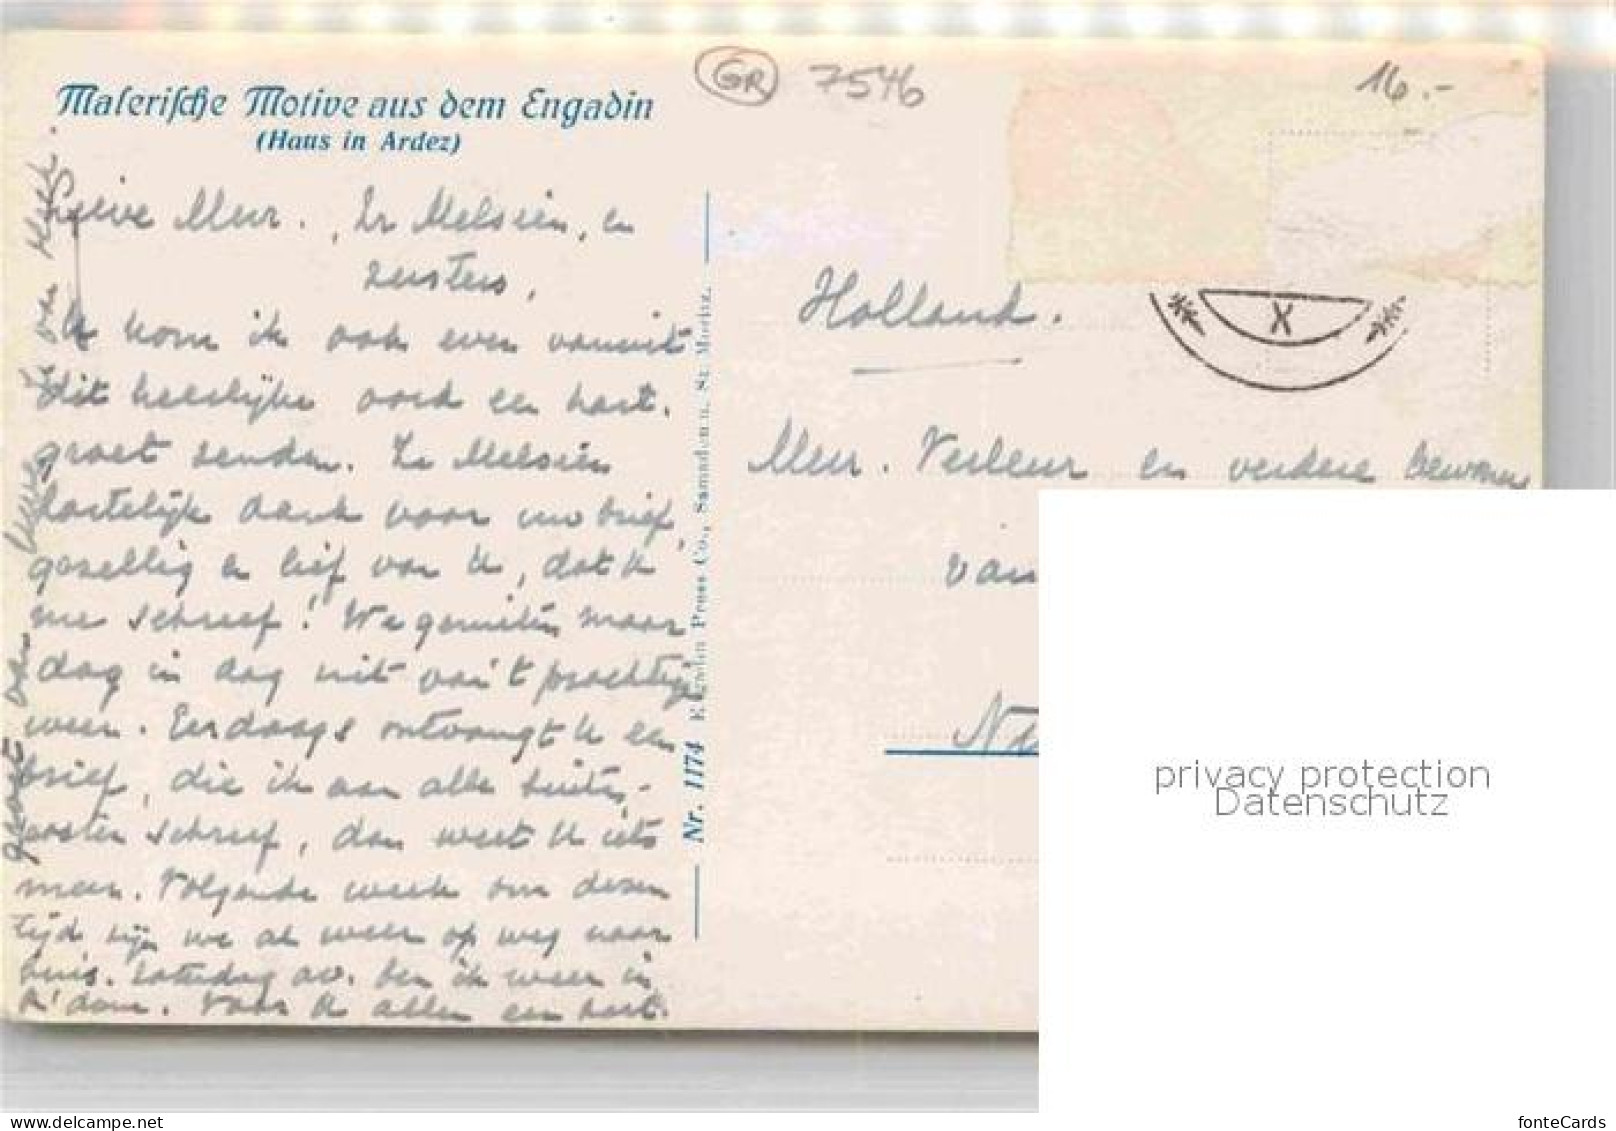 Malerische Motive aus dem Engadin
(Haus in Ardez)
GR 7546
16.-
Lieve Meur. , Zr Melsein, en
zusters,
Nu kom ik ook even vanuit
dit heerlijke oord een hart.
groet zenden. Zr Melsein
hartelijk dank voor uw brief,
gezellig en lief van U, dat U
me schreef! We genieten maar
dag in dag uit van 't prachtige
weer. Eerdaags ontvangt U een
brief, die ik aan alle
schreef, dan weet U iets
meer. Volgende week om dezen
tijd zijn we al weer op weg naar
huis. Zaterdag av. ben ik weer in
A'dam. Voor U allen een hart.
groet van
Nr. 1174 Engadin Press Co., Samaden u. St. Moritz.
Holland.
X
Meur. Verleur en verdere bewoners
van
privacy protection
Datenschutz
www.delcampe.net
fonteCards